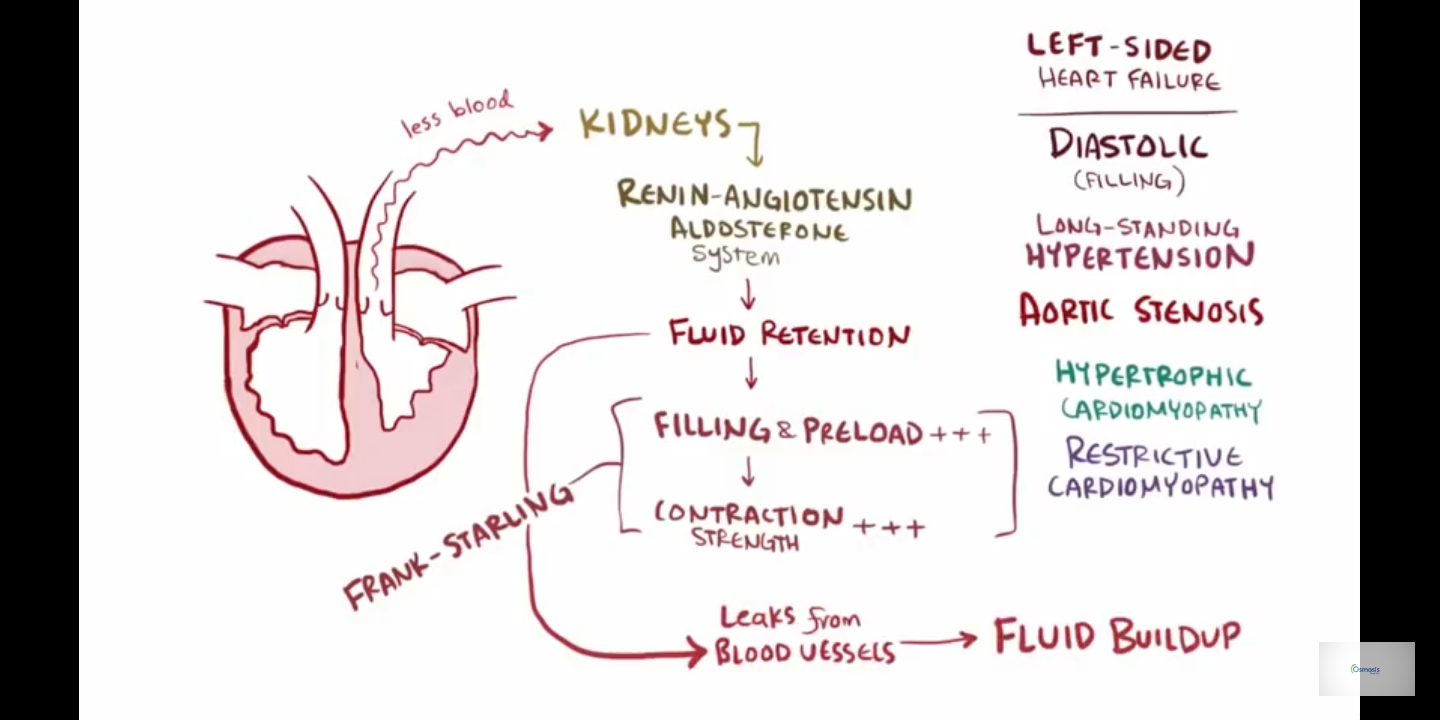 less blood
KIDNEYS
RENIN-ANGIOTENSIN
ALDOSTERONE
System
FLUID RETENTION
FILLING & PRELOAD +++
CONTRACTION +++
STRENGTH
FRANK-STARLING
Leaks from
BLOOD VESSELS
FLUID BUILDUP
LEFT-SIDED
HEART FAILURE
DIASTOLIC
(FILLING)
LONG-STANDING
HYPERTENSION
AORTIC STENOSIS
HYPERTROPHIC
CARDIOMYOPATHY
RESTRICTIVE
CARDIOMYOPATHY
Osmosis